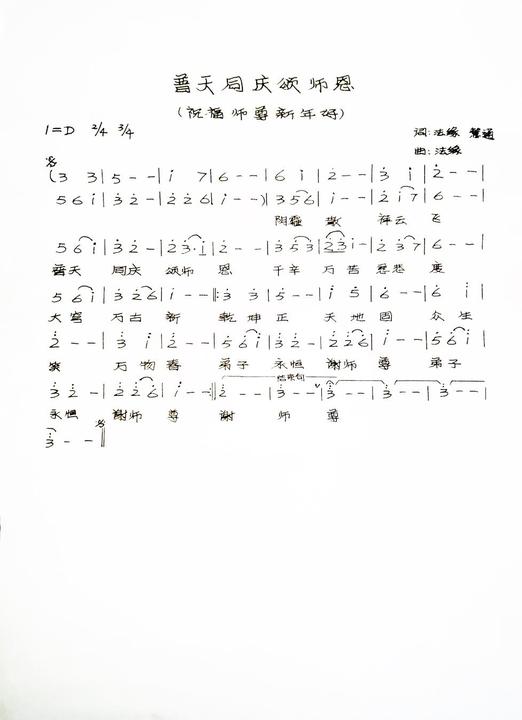 普天同庆颂师恩
(祝福师尊新年好)
1=D 2/4 3/4
词:法缘 慧通
曲:法缘
(3 3 | 5 - - | i 7 | 6 - - | 6 i | 2 - - | 3 i | 2 - - |
5 6 i | 3 2 - | 2 2 6 | i - - ) | 3 5 6 | i - - | 2 i 7 | 6 - - |
阴霾 散 祥云 飞
5 6 i | 2 - - | 2 3· i | 2 - - | 3 5 3 | 2 3 i | 2 3 7 | 6 - - |
普天 同庆 颂师 恩 千辛 万苦 慈悲 度
5 6 i | 3 2 6 | i - - ‖: 3 3 | 5 - - | i 5 | 6 - - | 6 i |
大穹 万古 新 乾 坤 正 天 地 固 众 生
2 - - | 3 i | 2 - - | 5 6 i | 3 2 - | 2 2 6 | i - - | 5 6 i |
笑 万 物 春 弟 子 永恒 谢师 尊 弟子
结束句
3 2 - | 2 2 6 | i - - :‖ 2 - - | 3 - - | 3 - - | 3 - - | 3 - - |
永恒 谢师 尊 谢 师 尊
3 - - ‖